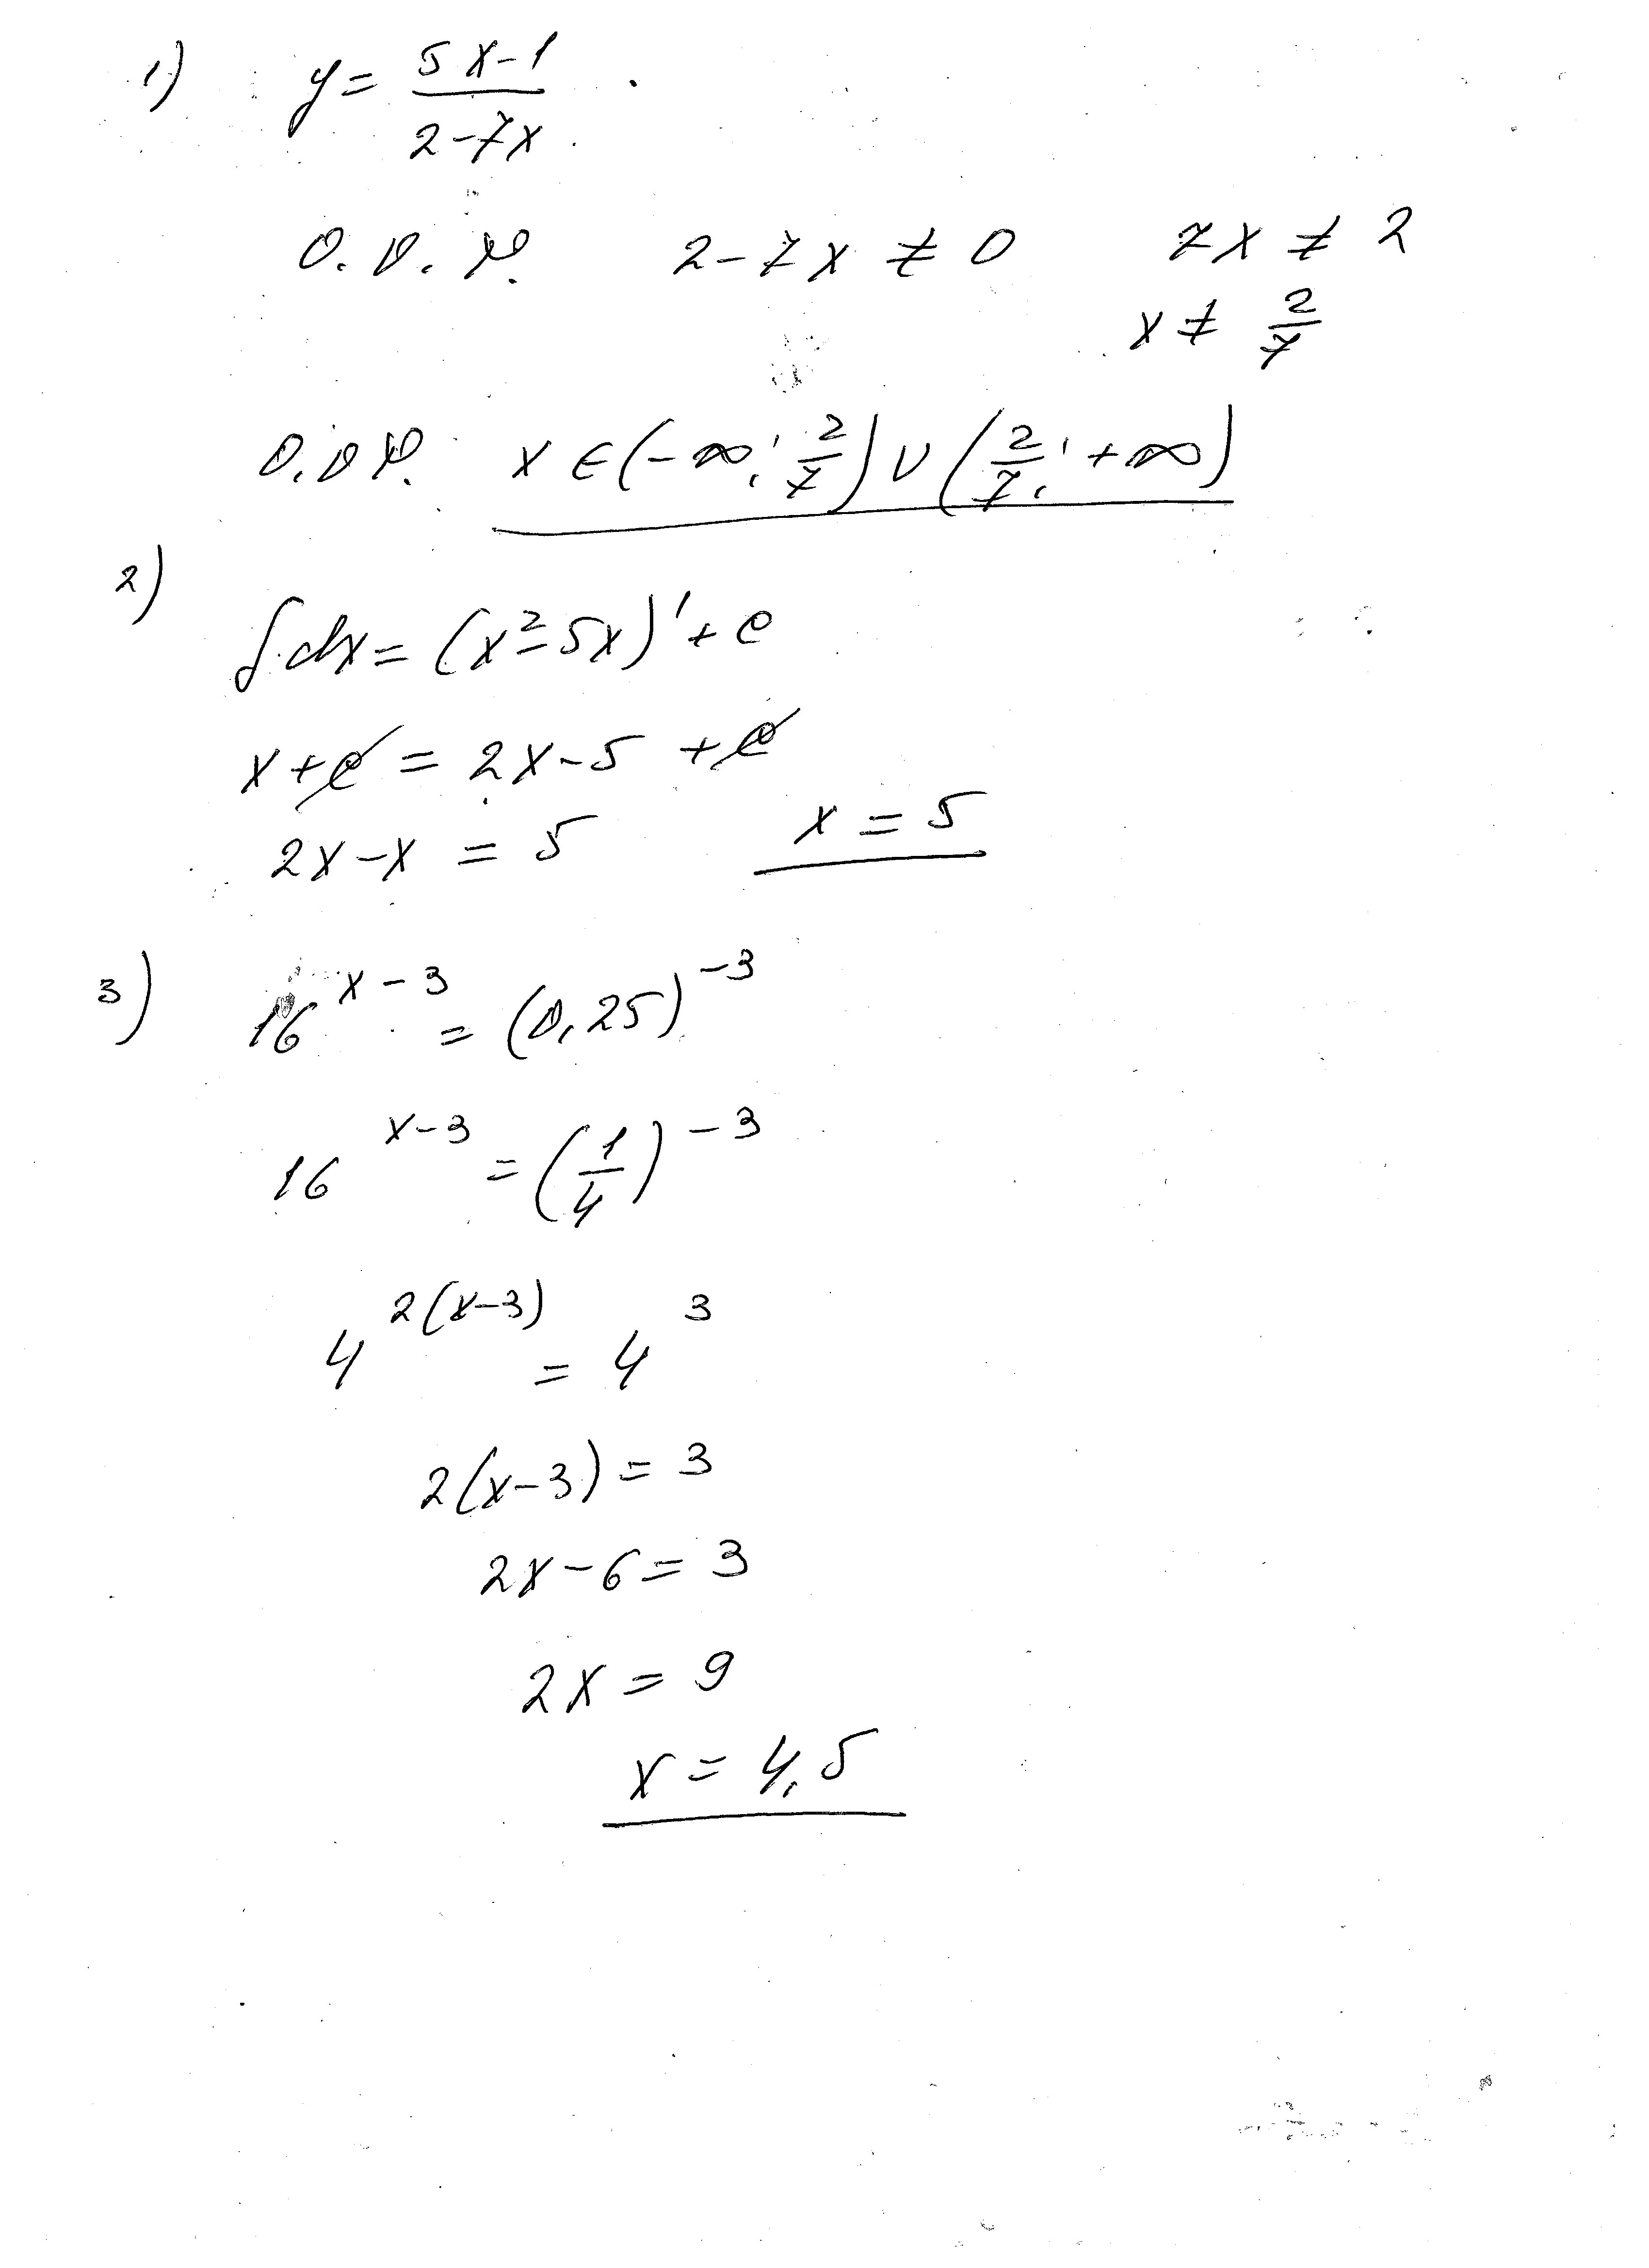 1) y = (5x-1)/(2-7x)
О.О.Ф. 2-7x ≠ 0 7x ≠ 2
x ≠ 2/7
О.О.Ф. x ∈ (-∞; 2/7) ∪ (2/7; +∞)
2)
∫dx = (x²-5x)' + c
x + c = 2x - 5 + c
2x - x = 5 x = 5
3) 16^(x-3) = (0,25)^(-3)
16^(x-3) = (1/4)^(-3)
4^(2(x-3)) = 4^3
2(x-3) = 3
2x - 6 = 3
2x = 9
x = 4,5